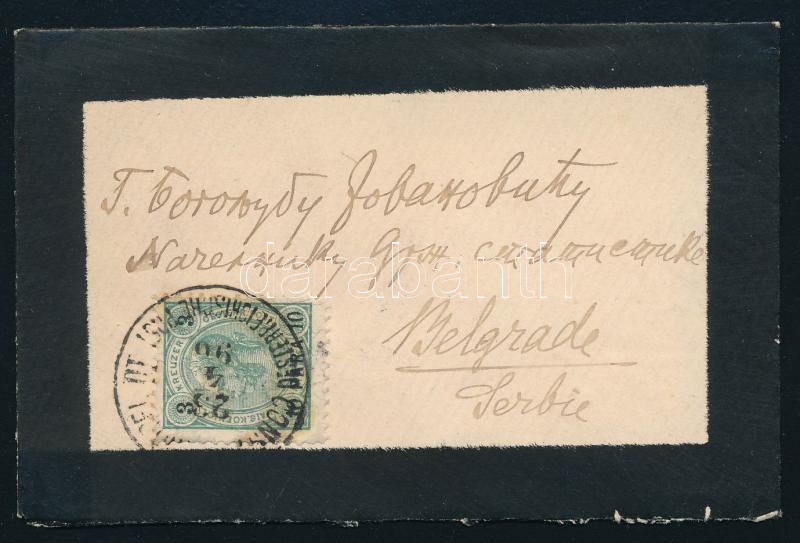 Г. Богољубу Јовановићу
Начелнику Држ. статистике
Belgrade
Serbie
darabanth
10 PARA 10
3 KREUZER 3
23
4
90